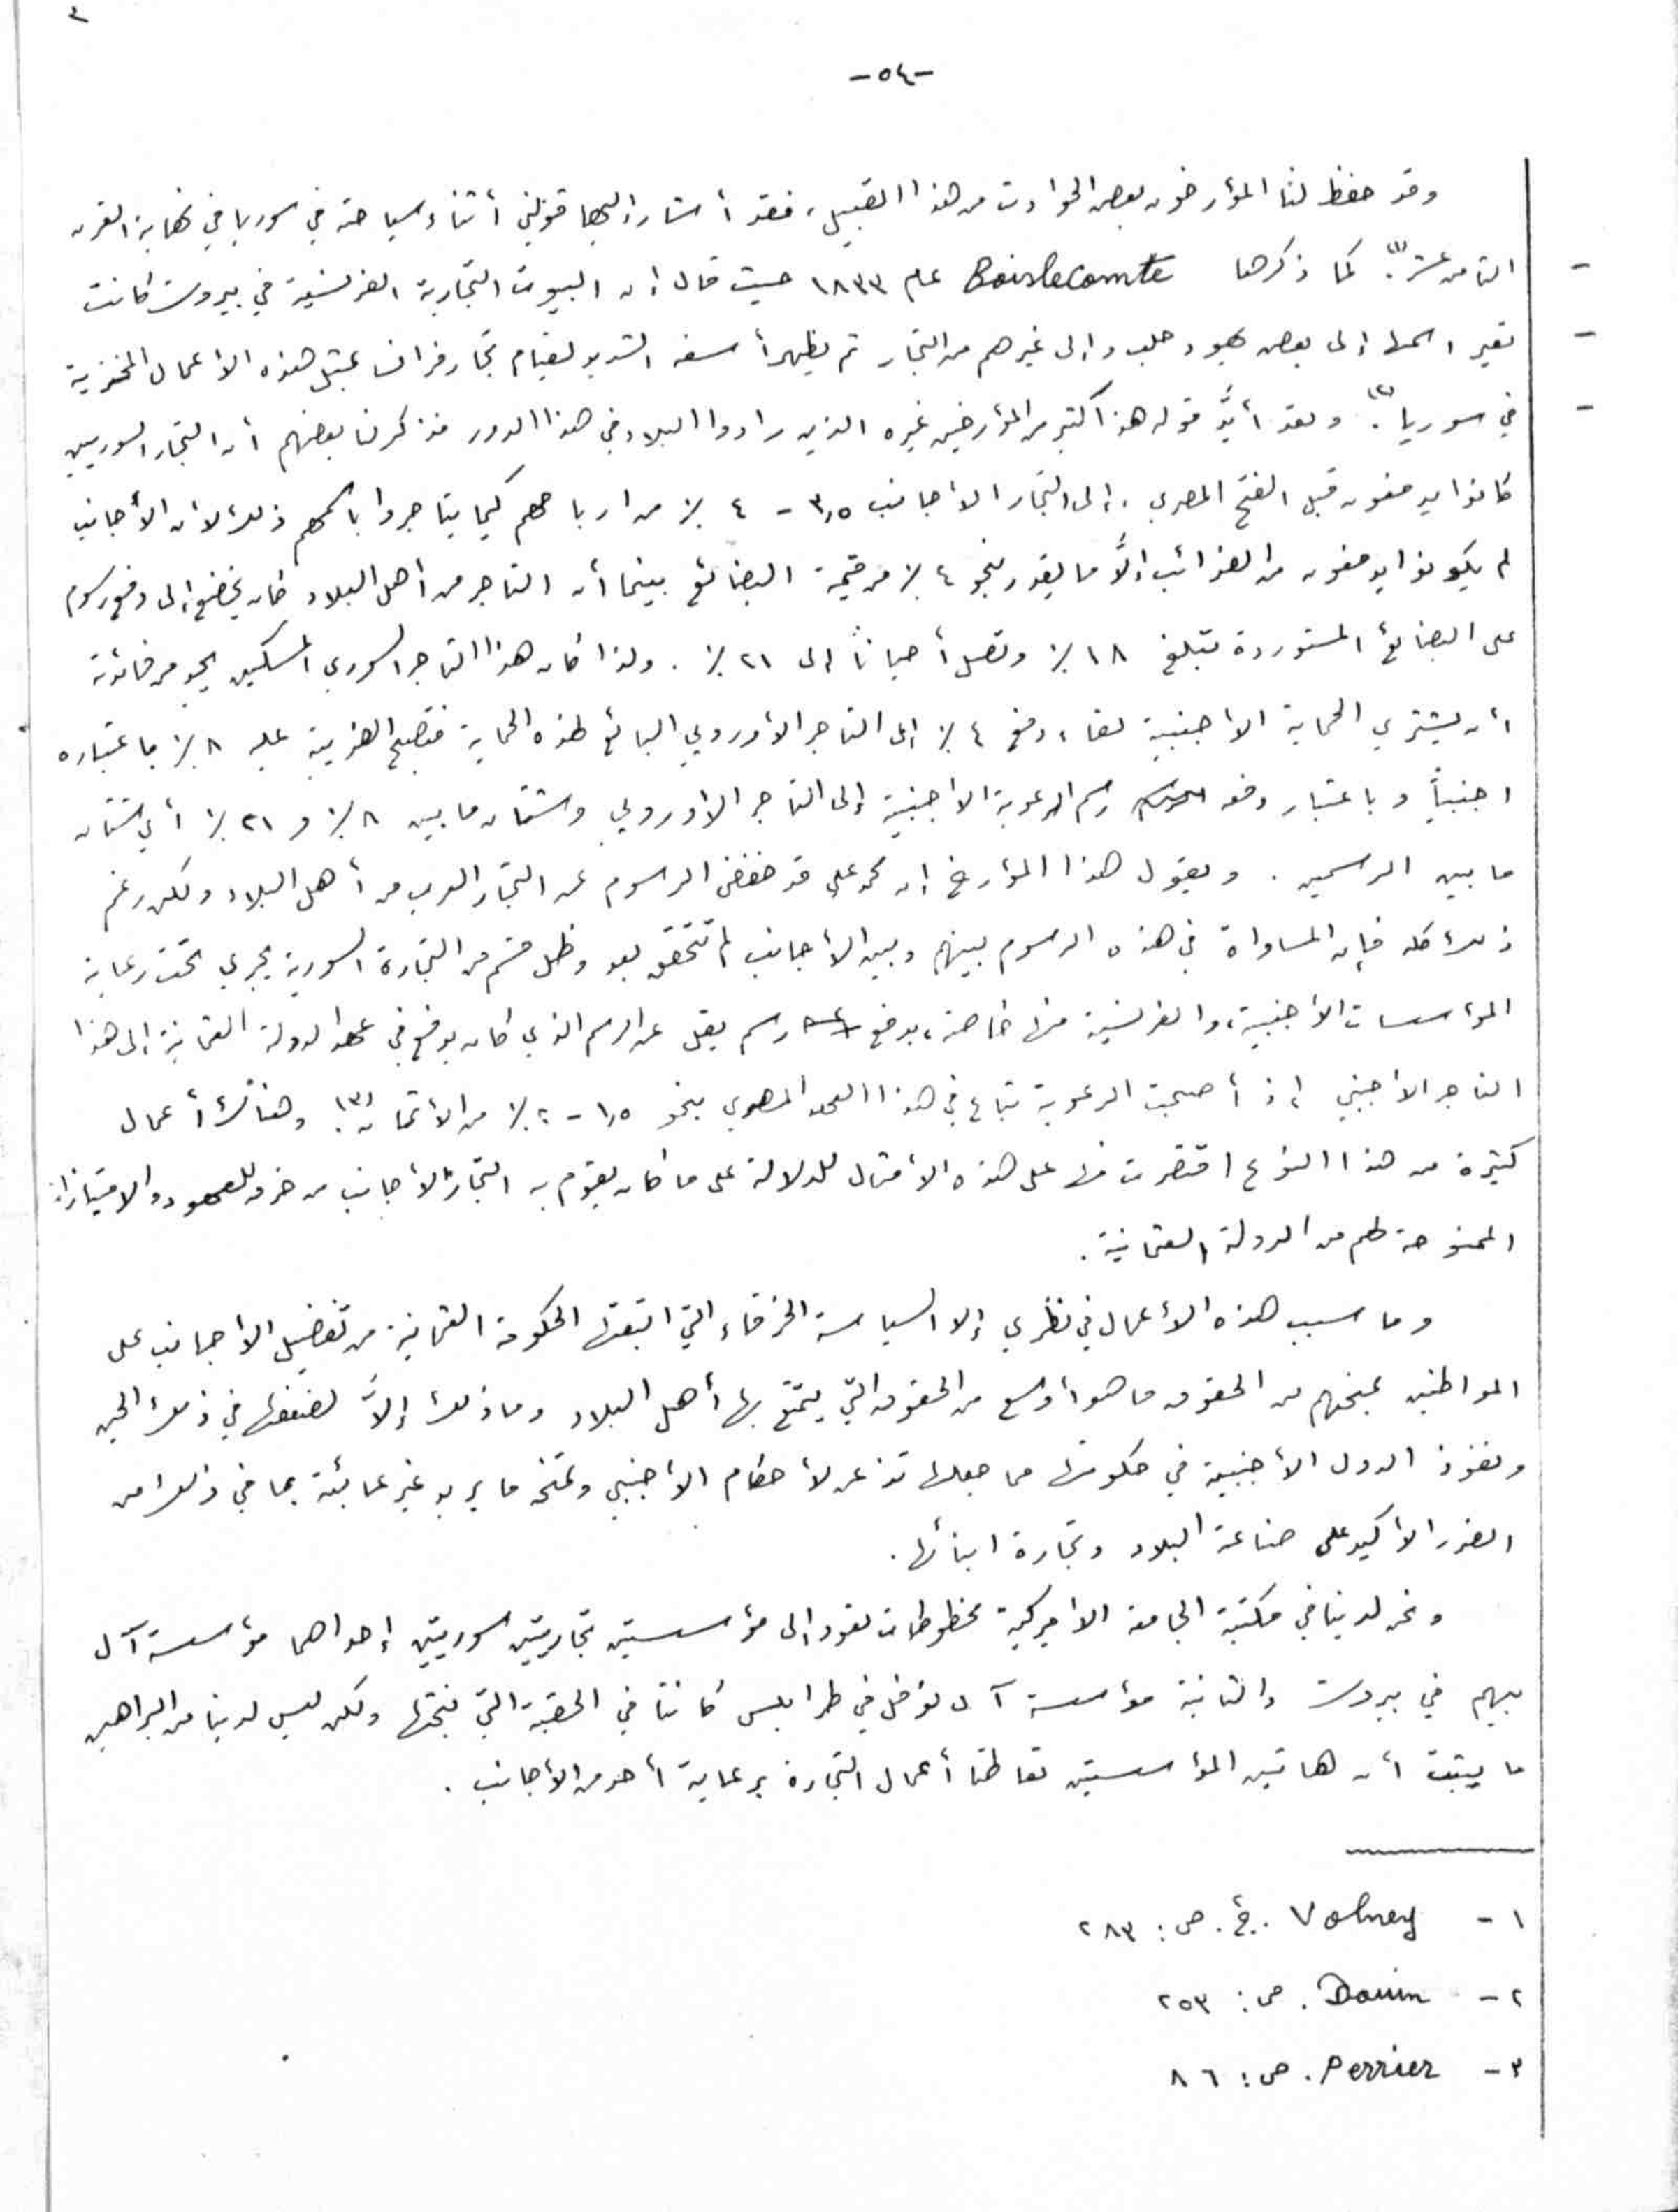 ٣
-٥٤-
وقد حفظ لنا المؤرخون بعض الحوادث من هذا القبيل، فقد أشار إليها فولني أثناء سياحته في سوريا في نهاية القرن
الثامن عشر(١). كما ذكرها Boislecomte عام ١٨٣٣ حيث قال إن البيوت التجارية الفرنسية في بيروت كانت
تعير اسمها إلى بعض يهود حلب وإلى غيرهم من التجار ثم يظهر أسفه الشديد لقيام تجار فرنسا بمثل هذه الأعمال المخزية
في سوريا(٢). ولقد أيَّد قوله هذا أكثر من المؤرخين غيره الذين رادوا البلاد في هذا الدور فذكر لنا بعضهم أن التجار السوريين
كانوا يدفعون قبل الفتح المصري، إلى التجار الأجانب ٣,٥ - ٤ ٪ من ارباحهم كيما يتاجروا باسمهم ذلك لأن الأجانب
لم يكونوا يدفعون من الضرائب إلاَّ ما يقدر بنحو ٤ ٪ من قيمة البضائع بينما أن التاجر من أهل البلاد كان يخضع إلى دفع رسوم
على البضائع المستوردة تبلغ ١٨ ٪ وتصل أحياناً إلى ٢١ ٪. ولذا كان هذا التاجر السوري المسكين يجد من فائدته
أن يشتري الحماية الاجنبية لقاء دفع ٤ ٪ إلى التاجر الأوروبي البائع لهذه الحماية فتصبح الضريبة عليه ٨ ٪ باعتباره
اجنبياً وباعتبار دفعه رسم الرعوية الاجنبية إلى التاجر الاوروبي وشتان ما بين ٨ ٪ و ٢١ ٪ أي شتان
ما بين الرسمين. ويقول هذا المؤرخ إن محمد علي قد خفض الرسوم عن التجار العرب من أهل البلاد ولكن رغم
ذلك كله فإن المساواة في هذه الرسوم بينهم وبين الأجانب لم تتحقق بعد وظل قسم من التجارة السورية يجري تحت رعاية
المؤسسات الأجنبية، والفرنسية منها خاصة، بدفع رسم يقل عن الرسم الذي كان يدفع في عهد الدولة العثمانية إلى هذا
التاجر الأجنبي إذ أصبحت الرعوية تباع في هذا العهد المصري بنحو ١,٥ - ٢ ٪ من الأثمان(٣). وهناك أعمال
كثيرة من هذا النوع اقتصرت منها على هذه الأمثال للدلالة على ما كان يقوم به التجار الأجانب من خرق للعهود والامتيازات
الممنوحة لهم من الدولة العثمانية.
وما سبب هذه الأعمال في نظري إلا السياسة الخرقاء التي اتبعتها الحكومة العثمانية من تفضيل الأجانب على
المواطنين بمنحهم من الحقوق ما هو أوسع من الحقوق التي يتمتع بها أهل البلاد وما ذلك إلاَّ لضعفها في ذلك الحين
ونفوذ الدول الأجنبية في حكومتها مما جعلها تذعن لأحكام الأجنبي وتمنحه ما يريد غير عابئة بما في ذلك من
الضرر الأكيد على صناعة البلاد وتجارة ابنائها.
ونحن لدينا في مكتبة الجامعة الاميركية مخطوطات تعود إلى مؤسستين تجاريتين سوريتين إحداهما مؤسسة آل
بيهم في بيروت والثانية مؤسسة آل نوفل في طرابلس كانتا في الحقبة التي نبحثها ولكن ليس لدينا من البراهين
ما يثبت أن هاتين المؤسستين تعاطتا أعمال التجارة برعاية أحد من الأجانب.
١ - Volney. ج٢. ص: ٢٨٣
٢ - Douin. ص: ٢٥٣
٣ - Perrier. ص: ٨٦